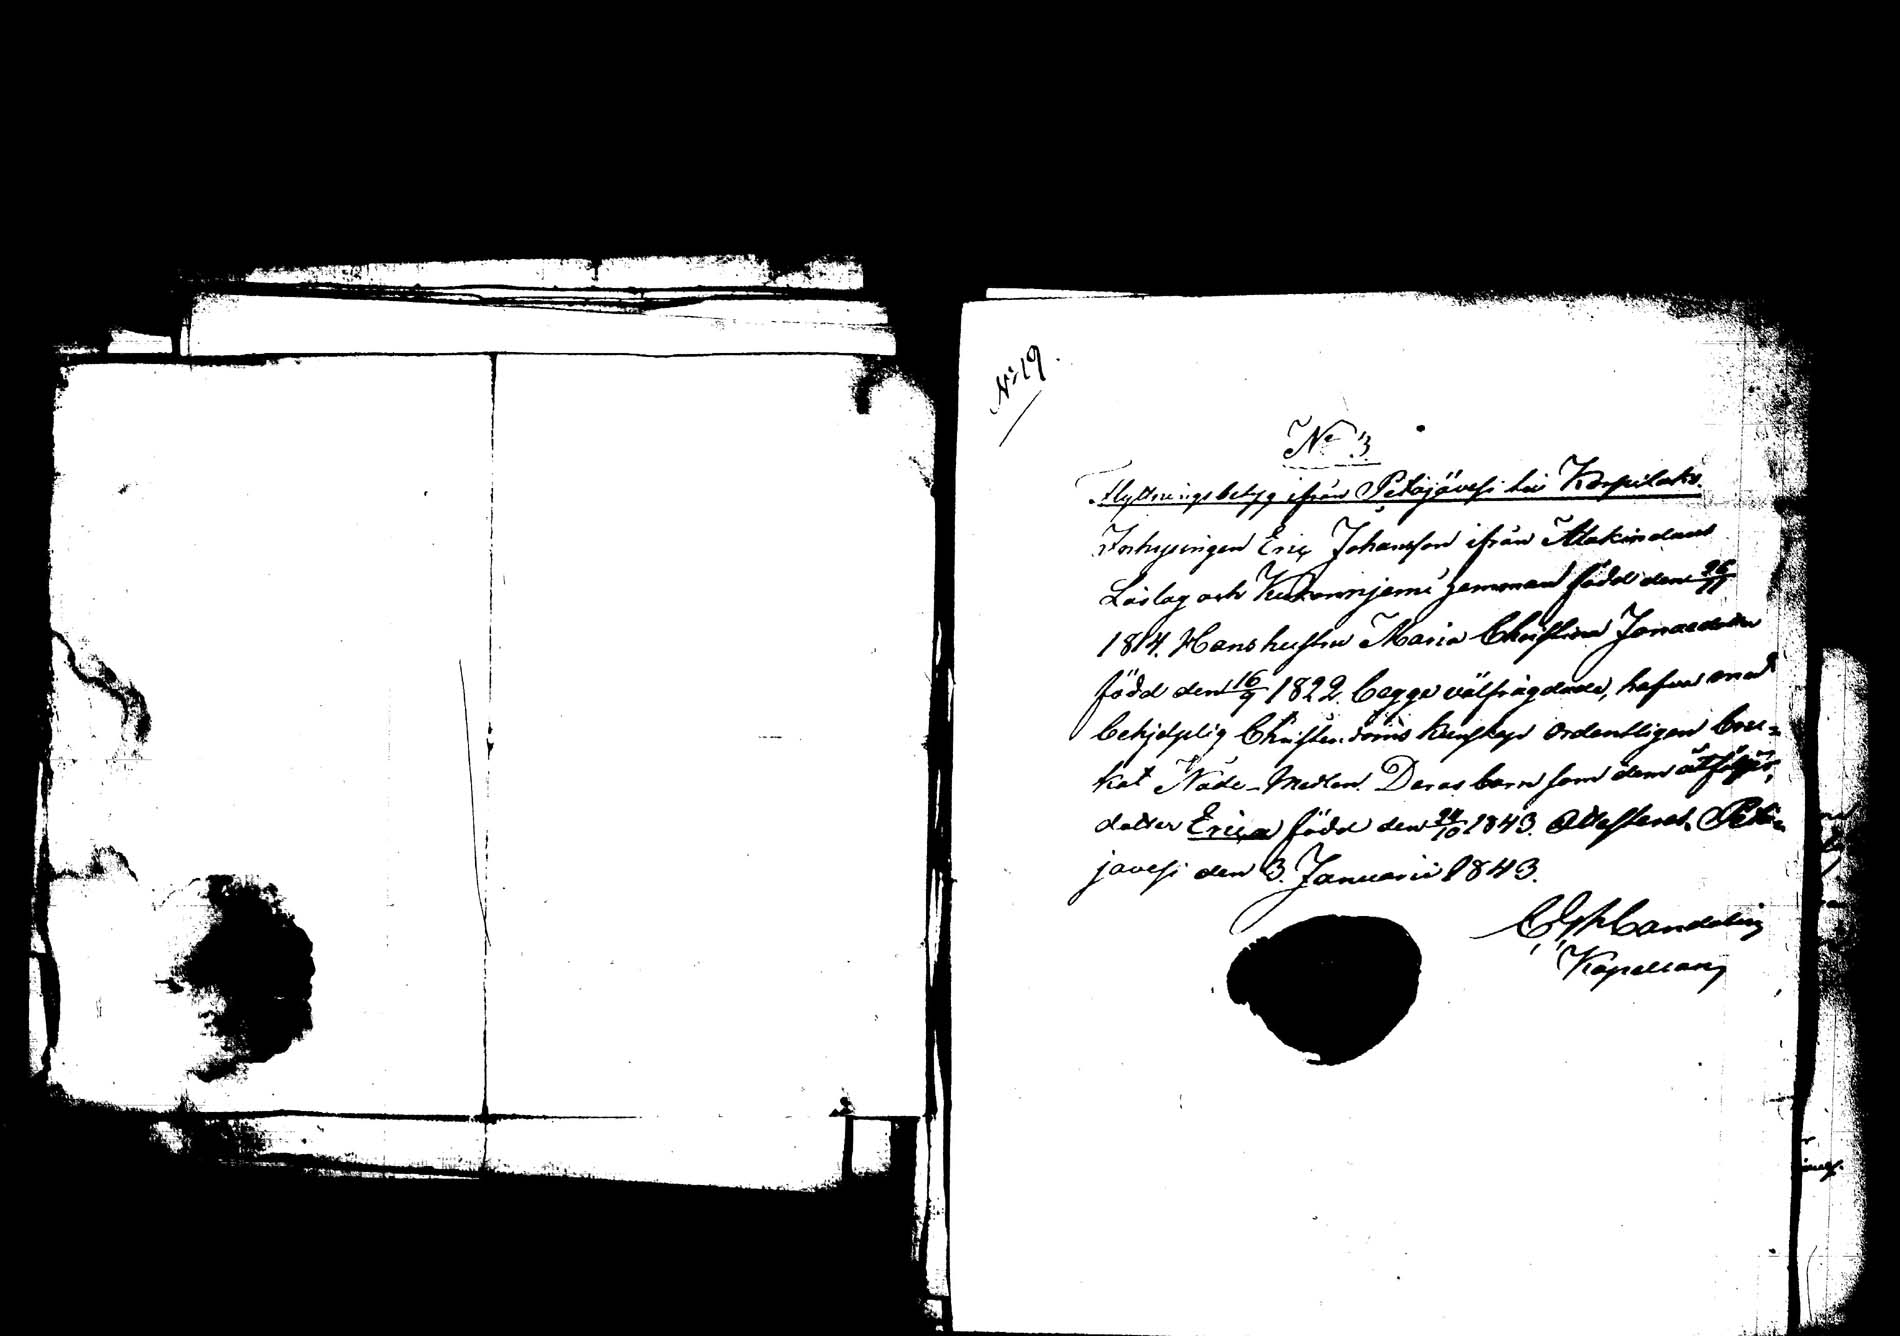 No 19.
No 3.
Flyttningsbetyg ifrån Petäjävesi till Korpilaks.
Inhysingen Eric Johansson ifrån
Låslag och hemman född den 26/11
1814. Hans hustru Maria Christina Jonaedotter
född den 16/9 1822. begge välfrägdade, hafva med
behjelplig Christendoms kunskap ordentligen bru-
kat Nåde-Medlen. Deras barn som dem åtföljer,
dotter Erica född den 24/10 1843. Attesteras. Petä-
javesi den 3. Januarii 1843.
Kapellan